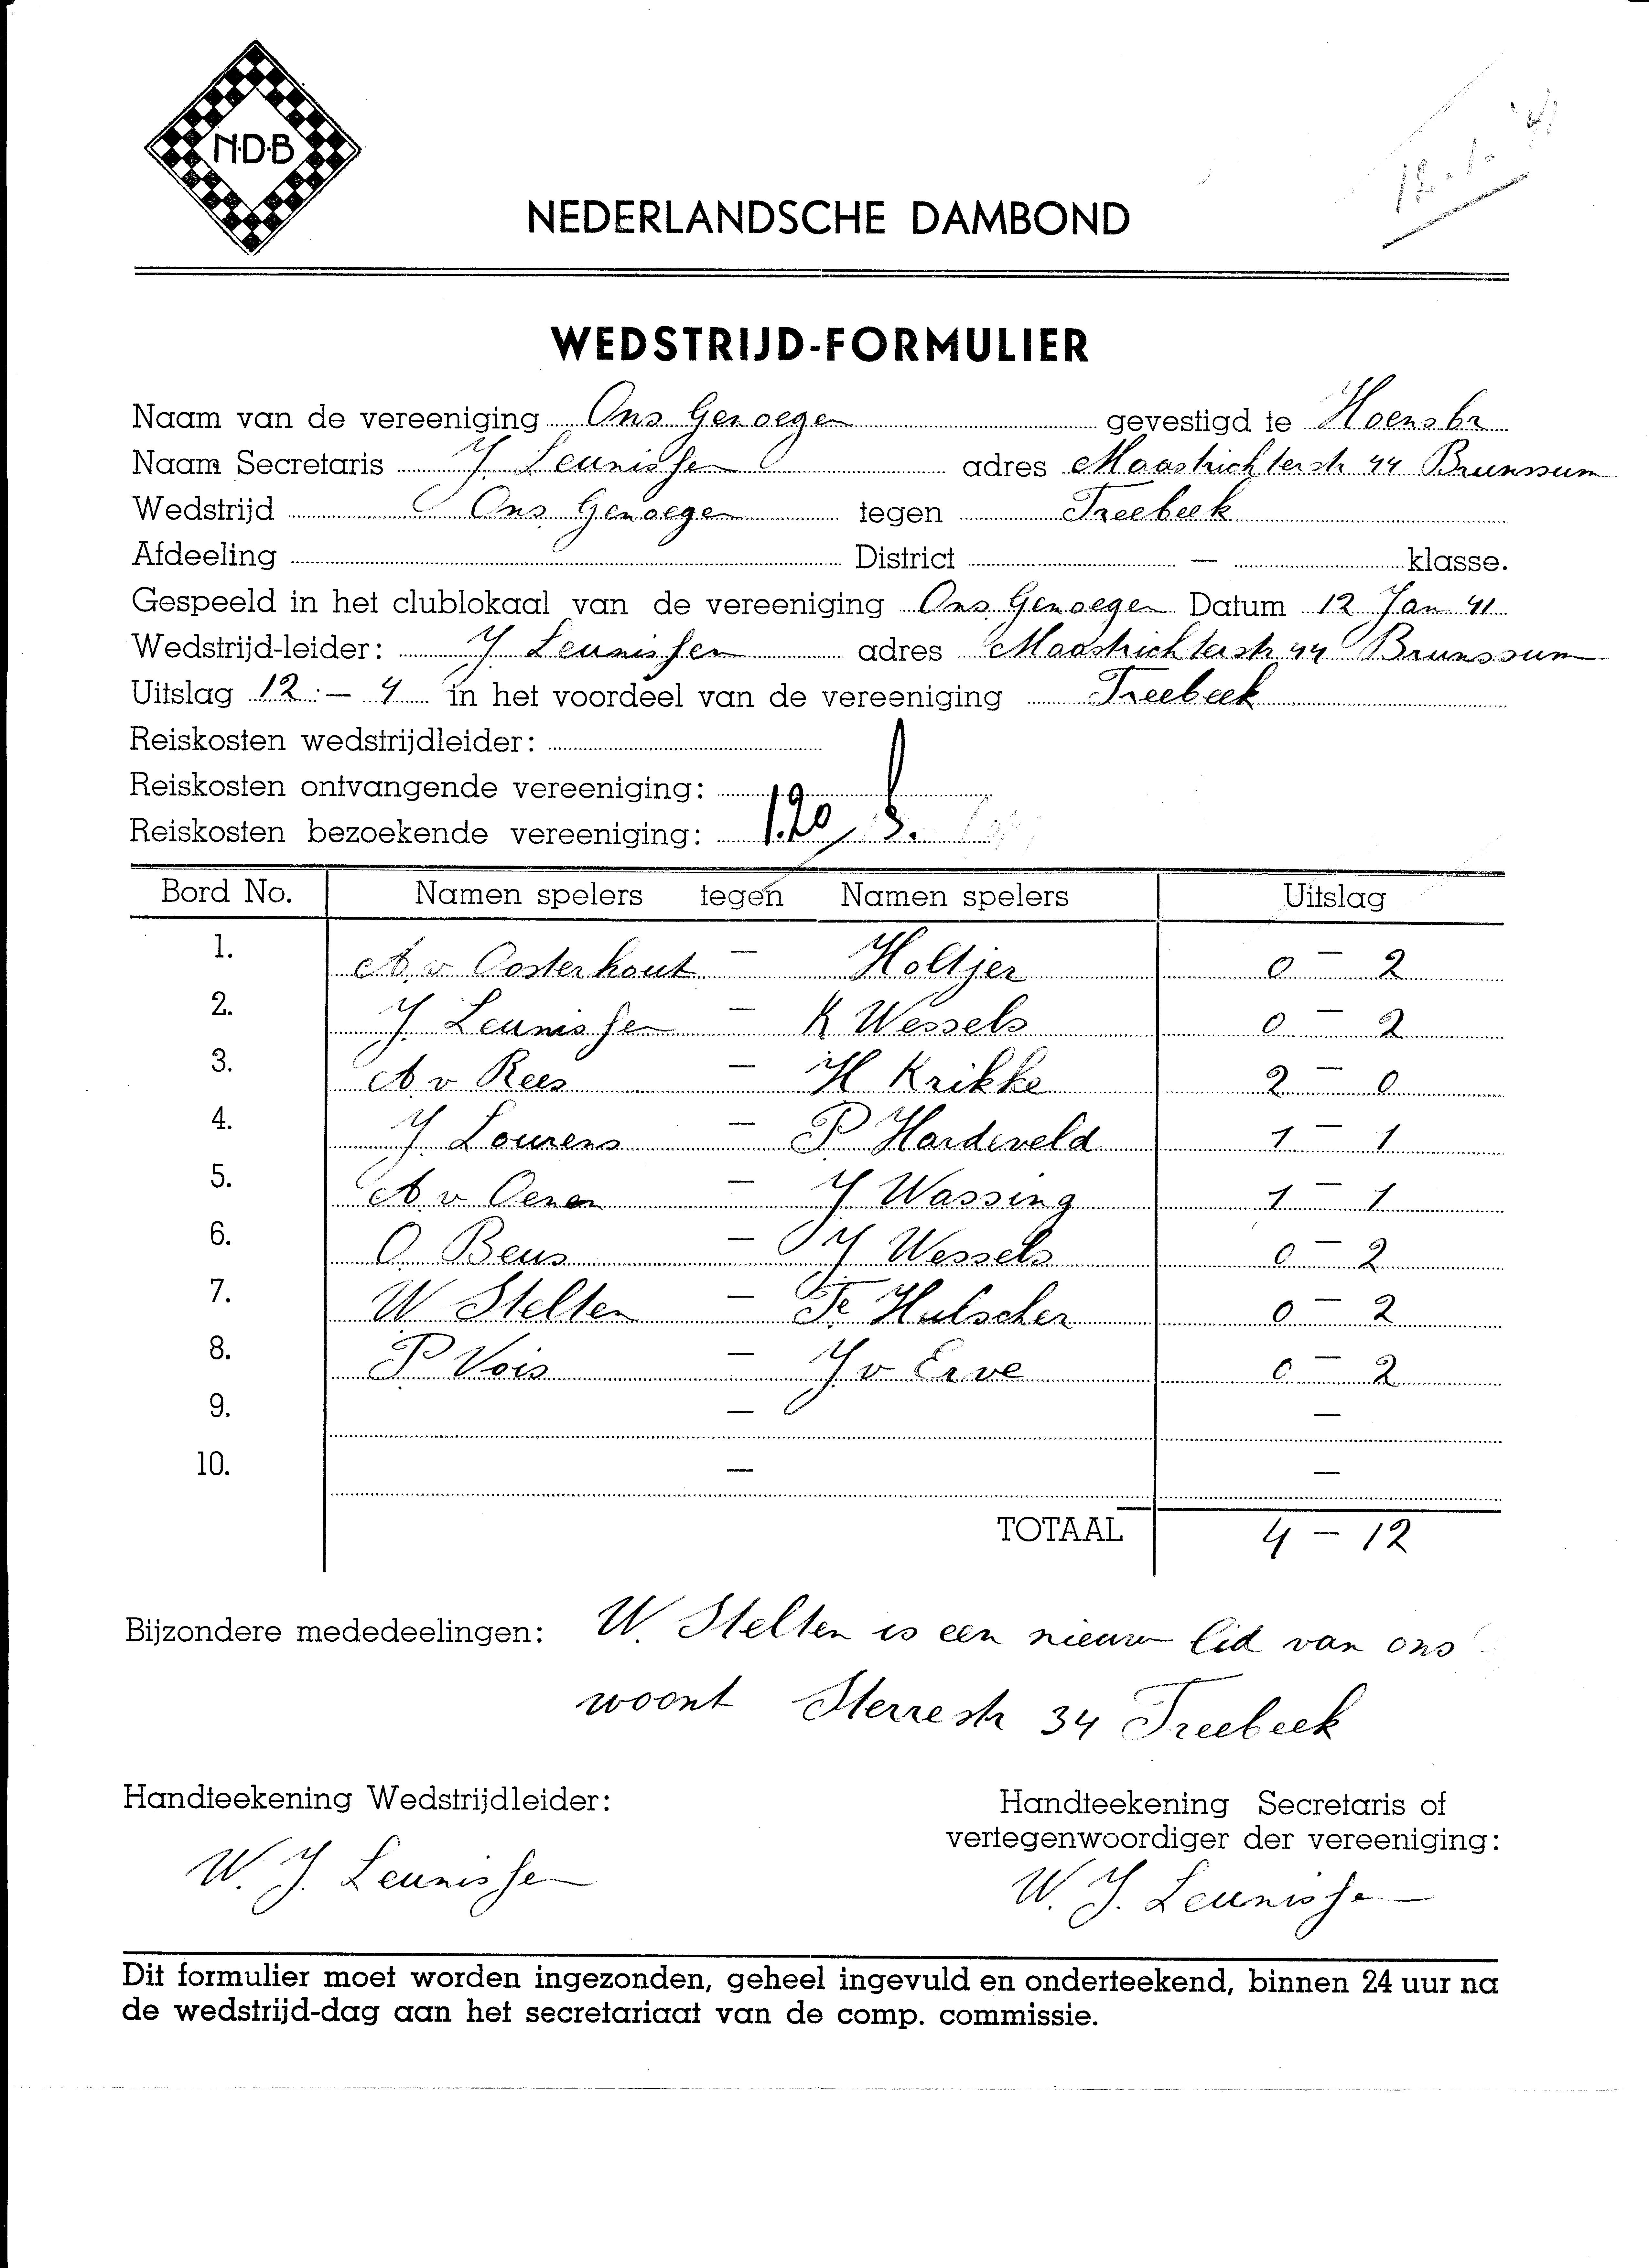 N·D·B
12-1-'41
NEDERLANDSCHE DAMBOND
WEDSTRIJD-FORMULIER
Naam van de vereeniging Ons Genoegen gevestigd te Hoensbr
Naam Secretaris J. Leunissen adres Maastrichterstr 44 Brunssum
Wedstrijd Ons Genoegen tegen Treebeek
Afdeeling District — klasse.
Gespeeld in het clublokaal van de vereeniging Ons Genoegen Datum 12 Jan 41
Wedstrijd-leider: J Leunissen adres Maastrichterstr 44 Brunssum
Uitslag 12 - 4 in het voordeel van de vereeniging Treebeek
Reiskosten wedstrijdleider:
Reiskosten ontvangende vereeniging:
Reiskosten bezoekende vereeniging: 1.20
Bord No. Namen spelers tegen Namen spelers Uitslag
1. A. v. Oosterhout — Holtjer 0 — 2
2. J. Leunissen — K Wessels 0 — 2
3. A v Rees — H Krikke 2 — 0
4. J Lourens — P Hardeveld 1 — 1
5. A v Oenen — J Wassing 1 — 1
6. O. Beus — J Wessels 0 — 2
7. W Stelten — Fe Hulscher 0 — 2
8. P Vois — J v Erve 0 — 2
9. — —
10. — —
TOTAAL 4 — 12
Bijzondere mededeelingen: W. Stelten is een nieuw lid van ons
woont Sterrestr 34 Treebeek
Handteekening Wedstrijdleider: Handteekening Secretaris of
vertegenwoordiger der vereeniging:
W. J. Leunissen W. J. Leunissen
Dit formulier moet worden ingezonden, geheel ingevuld en onderteekend, binnen 24 uur na
de wedstrijd-dag aan het secretariaat van de comp. commissie.